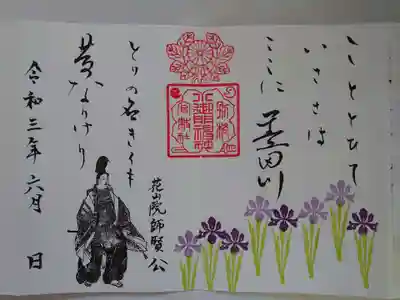 こととひて
いささは
ここに 墨田川
とりの名きくも
都なりけり
別格
小御門神社
官幣社
花山院師賢公
令和三年六月 日